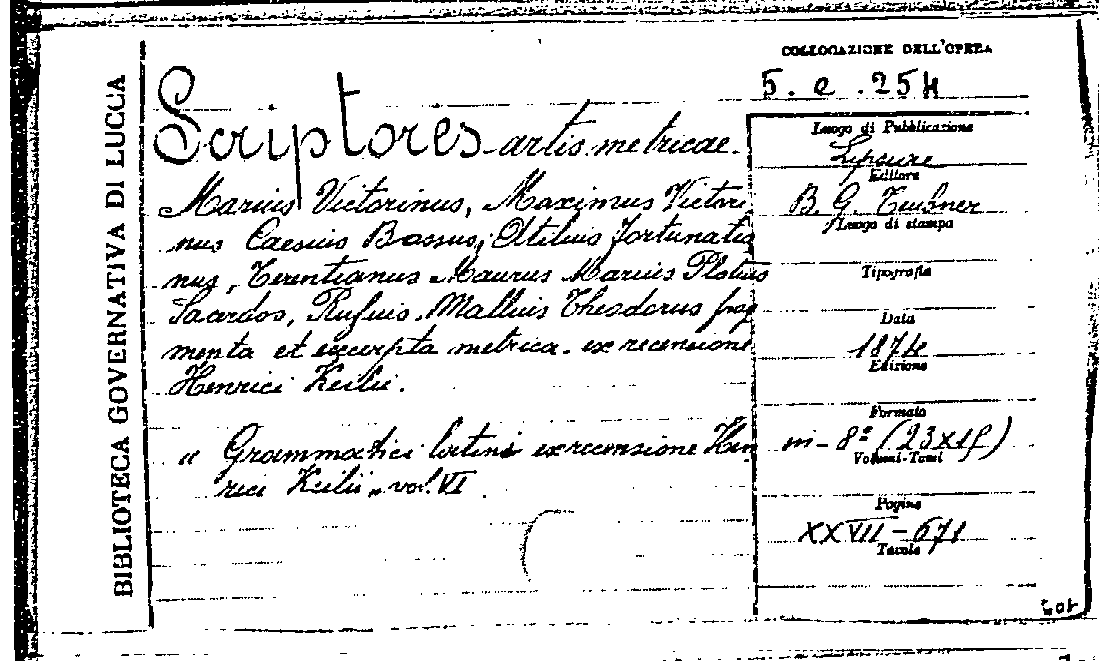 BIBLIOTECA GOVERNATIVA DI LUCCA
COLLOCAZIONE DELL'OPERA
5. e. 254
Scriptores artis metricae.
Marius Victorinus, Maximus Victori
nus Caesius Bassus, Atilius Fortunatia
nus, Terentianus Maurus Marius Plotius
Sacerdos, Rufius. Mallius Theodorus frag
menta et excerpta metrica. ex recensione
Henrici Keilii.
" Grammatici latini ex recensione Hen
rici Keilii " vol. VI
Luogo di Pubblicazione
Editore
B. G. Teubner
Luogo di stampa
Tipografia
Data
1874
Edizione
Formato
in - 8º (23x15)
Volumi-Tomi
Pagine
XXVII - 671
Tavole